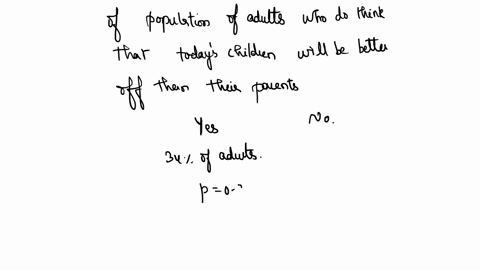 of population of adults who do think
that today's children will be better
off then their parents
Yes No.
34% of adults.
p=0.